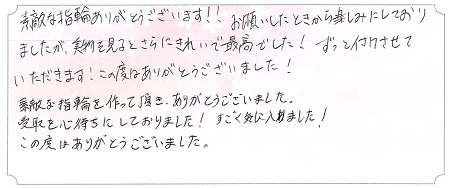 素敵な指輪ありがとうございます!! お願いしたときから楽しみにしており
ましたが、実物を見るとさらにきれいで最高でした! ずっと付けさせて
いただきます!この度はありがとうございました!
素敵な指輪を作って頂き、ありがとうございました。
受取を心待ちにしておりました! すごく気に入りました!
この度はありがとうございました。